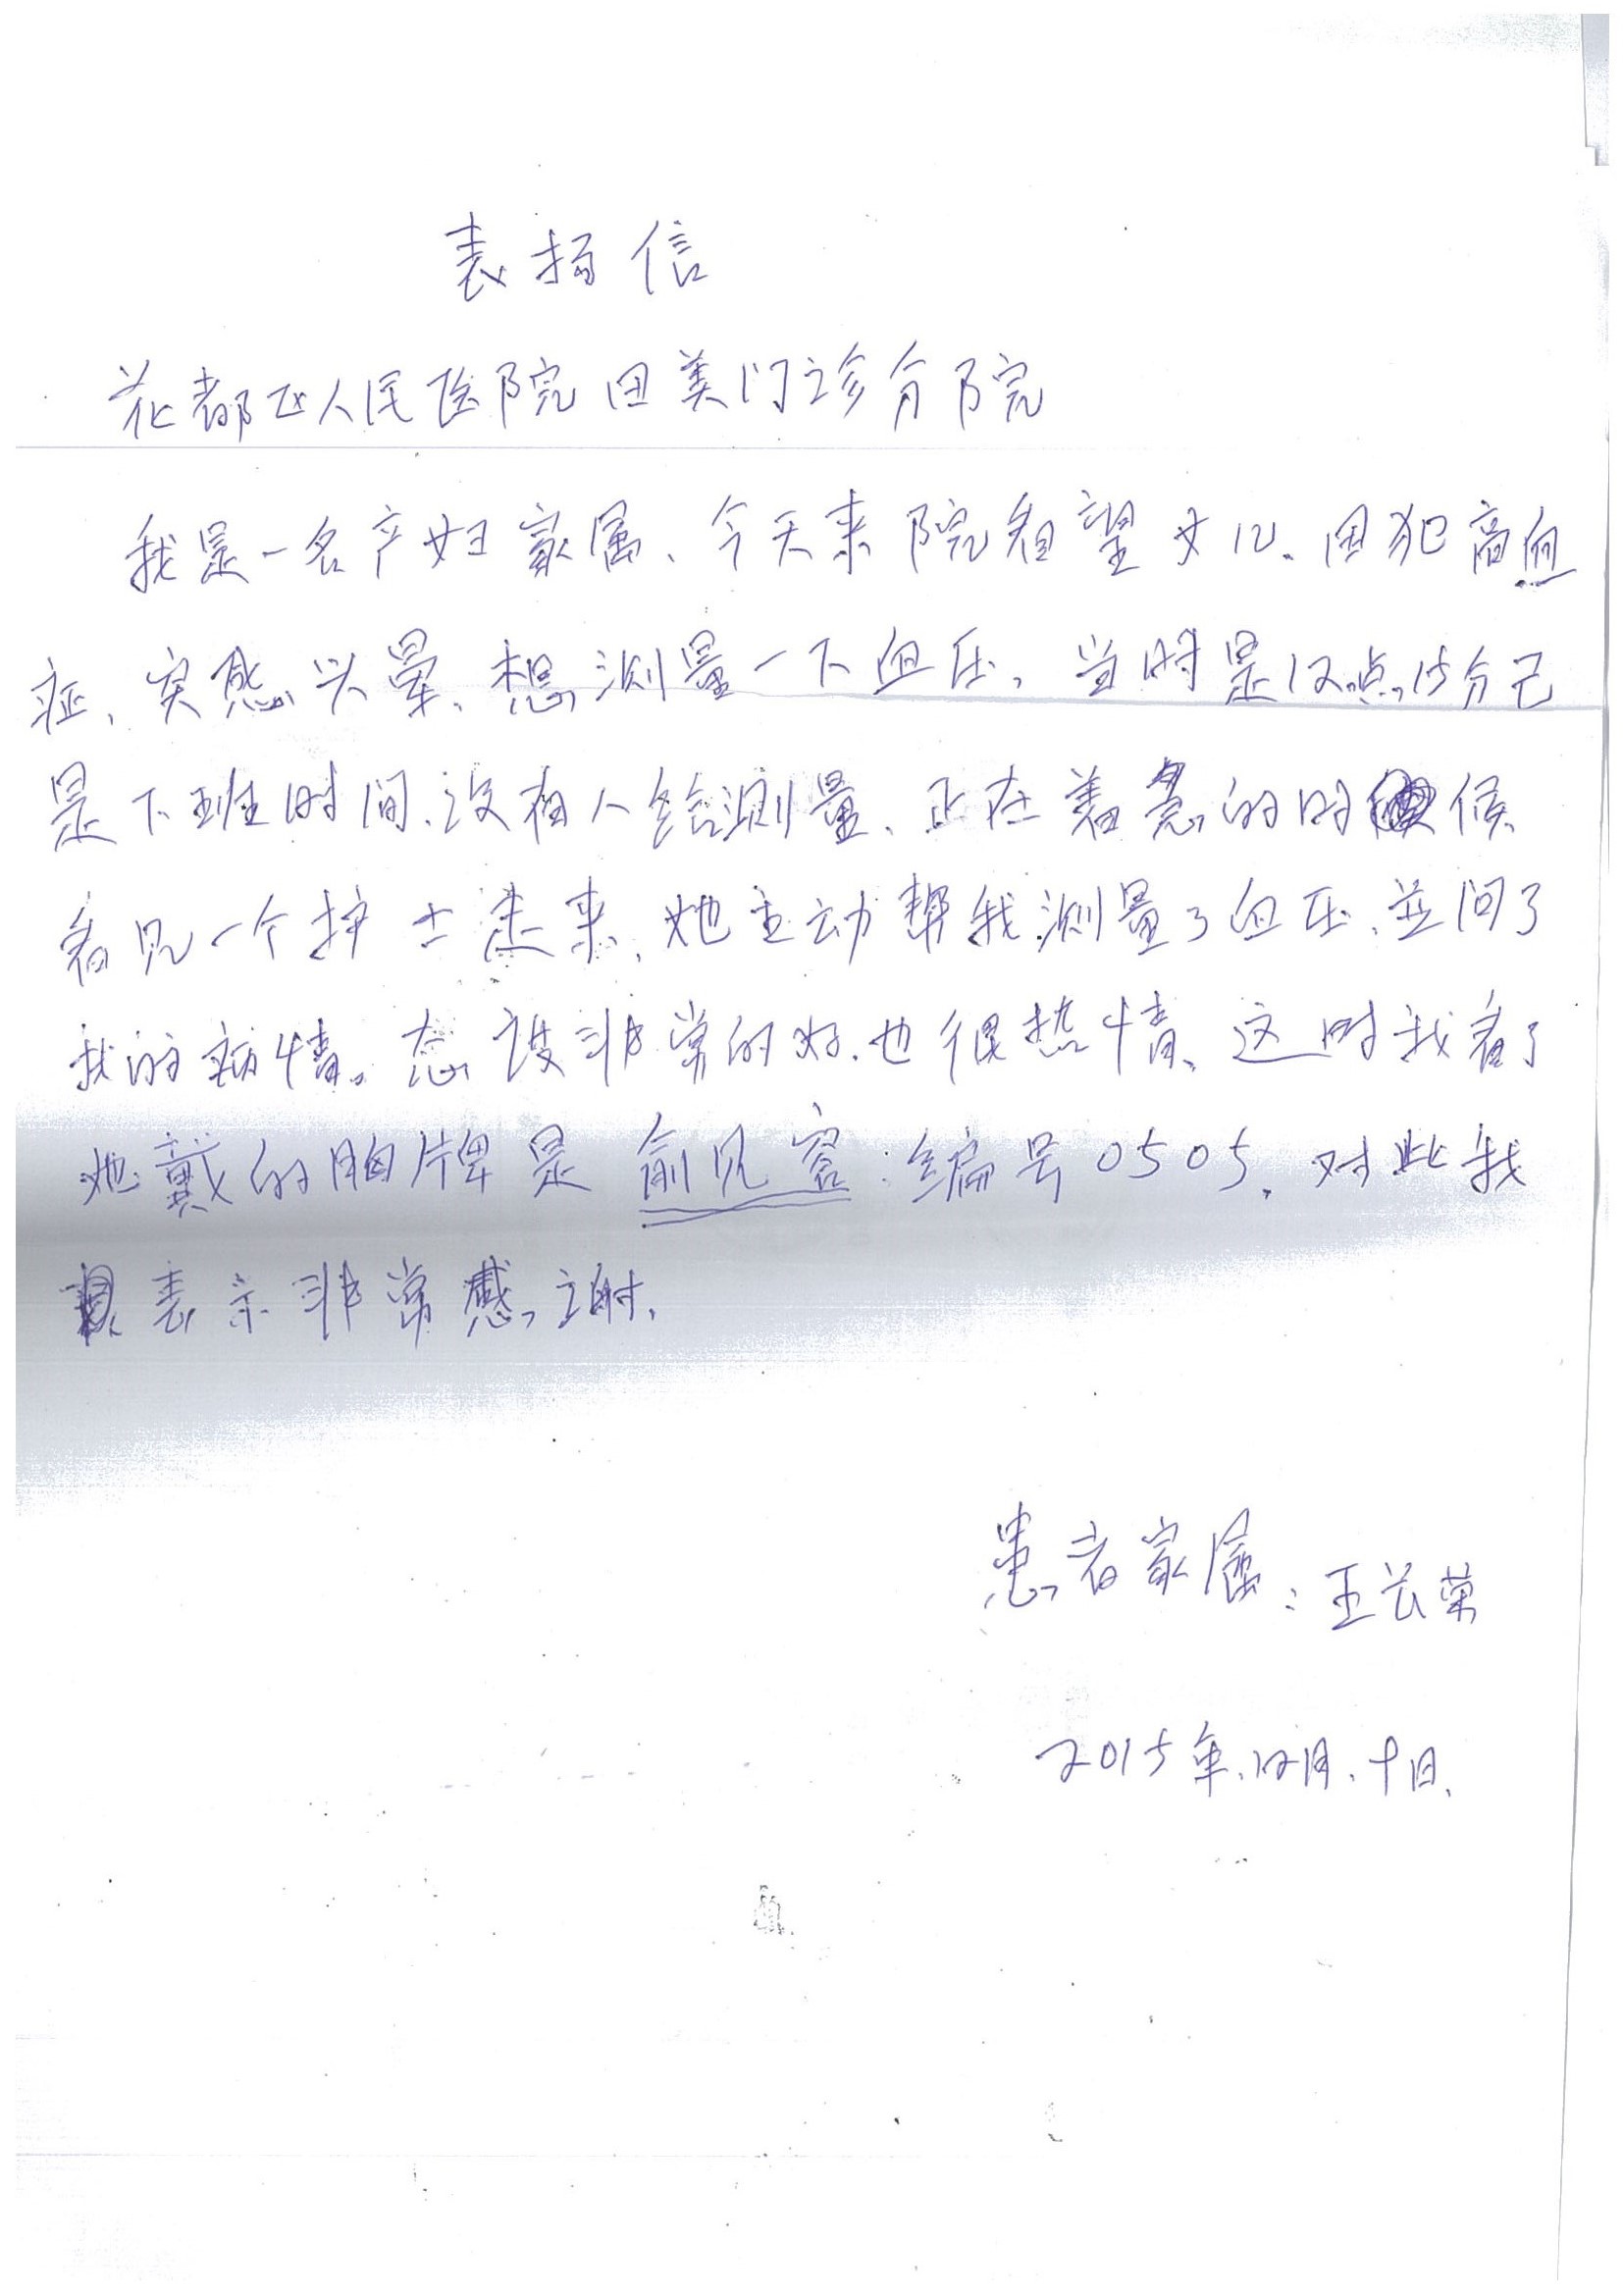 表扬信
花都区人民医院田美门诊分院
我是一名产妇家属、今天来院看望女儿、因犯高血
症、突感头晕、想测量一下血压，当时是12点15分已
是下班时间、没有人给测量、正在着急的时候
看见一个护士走来、她主动帮我测量了血压、并问了
我的病情。态度非常的好、也很热情、这时我看了
她戴的胸牌是俞见容：编号0505、对此我
表示非常感谢、
患者家属：王长荣
2015年、12月、十日、